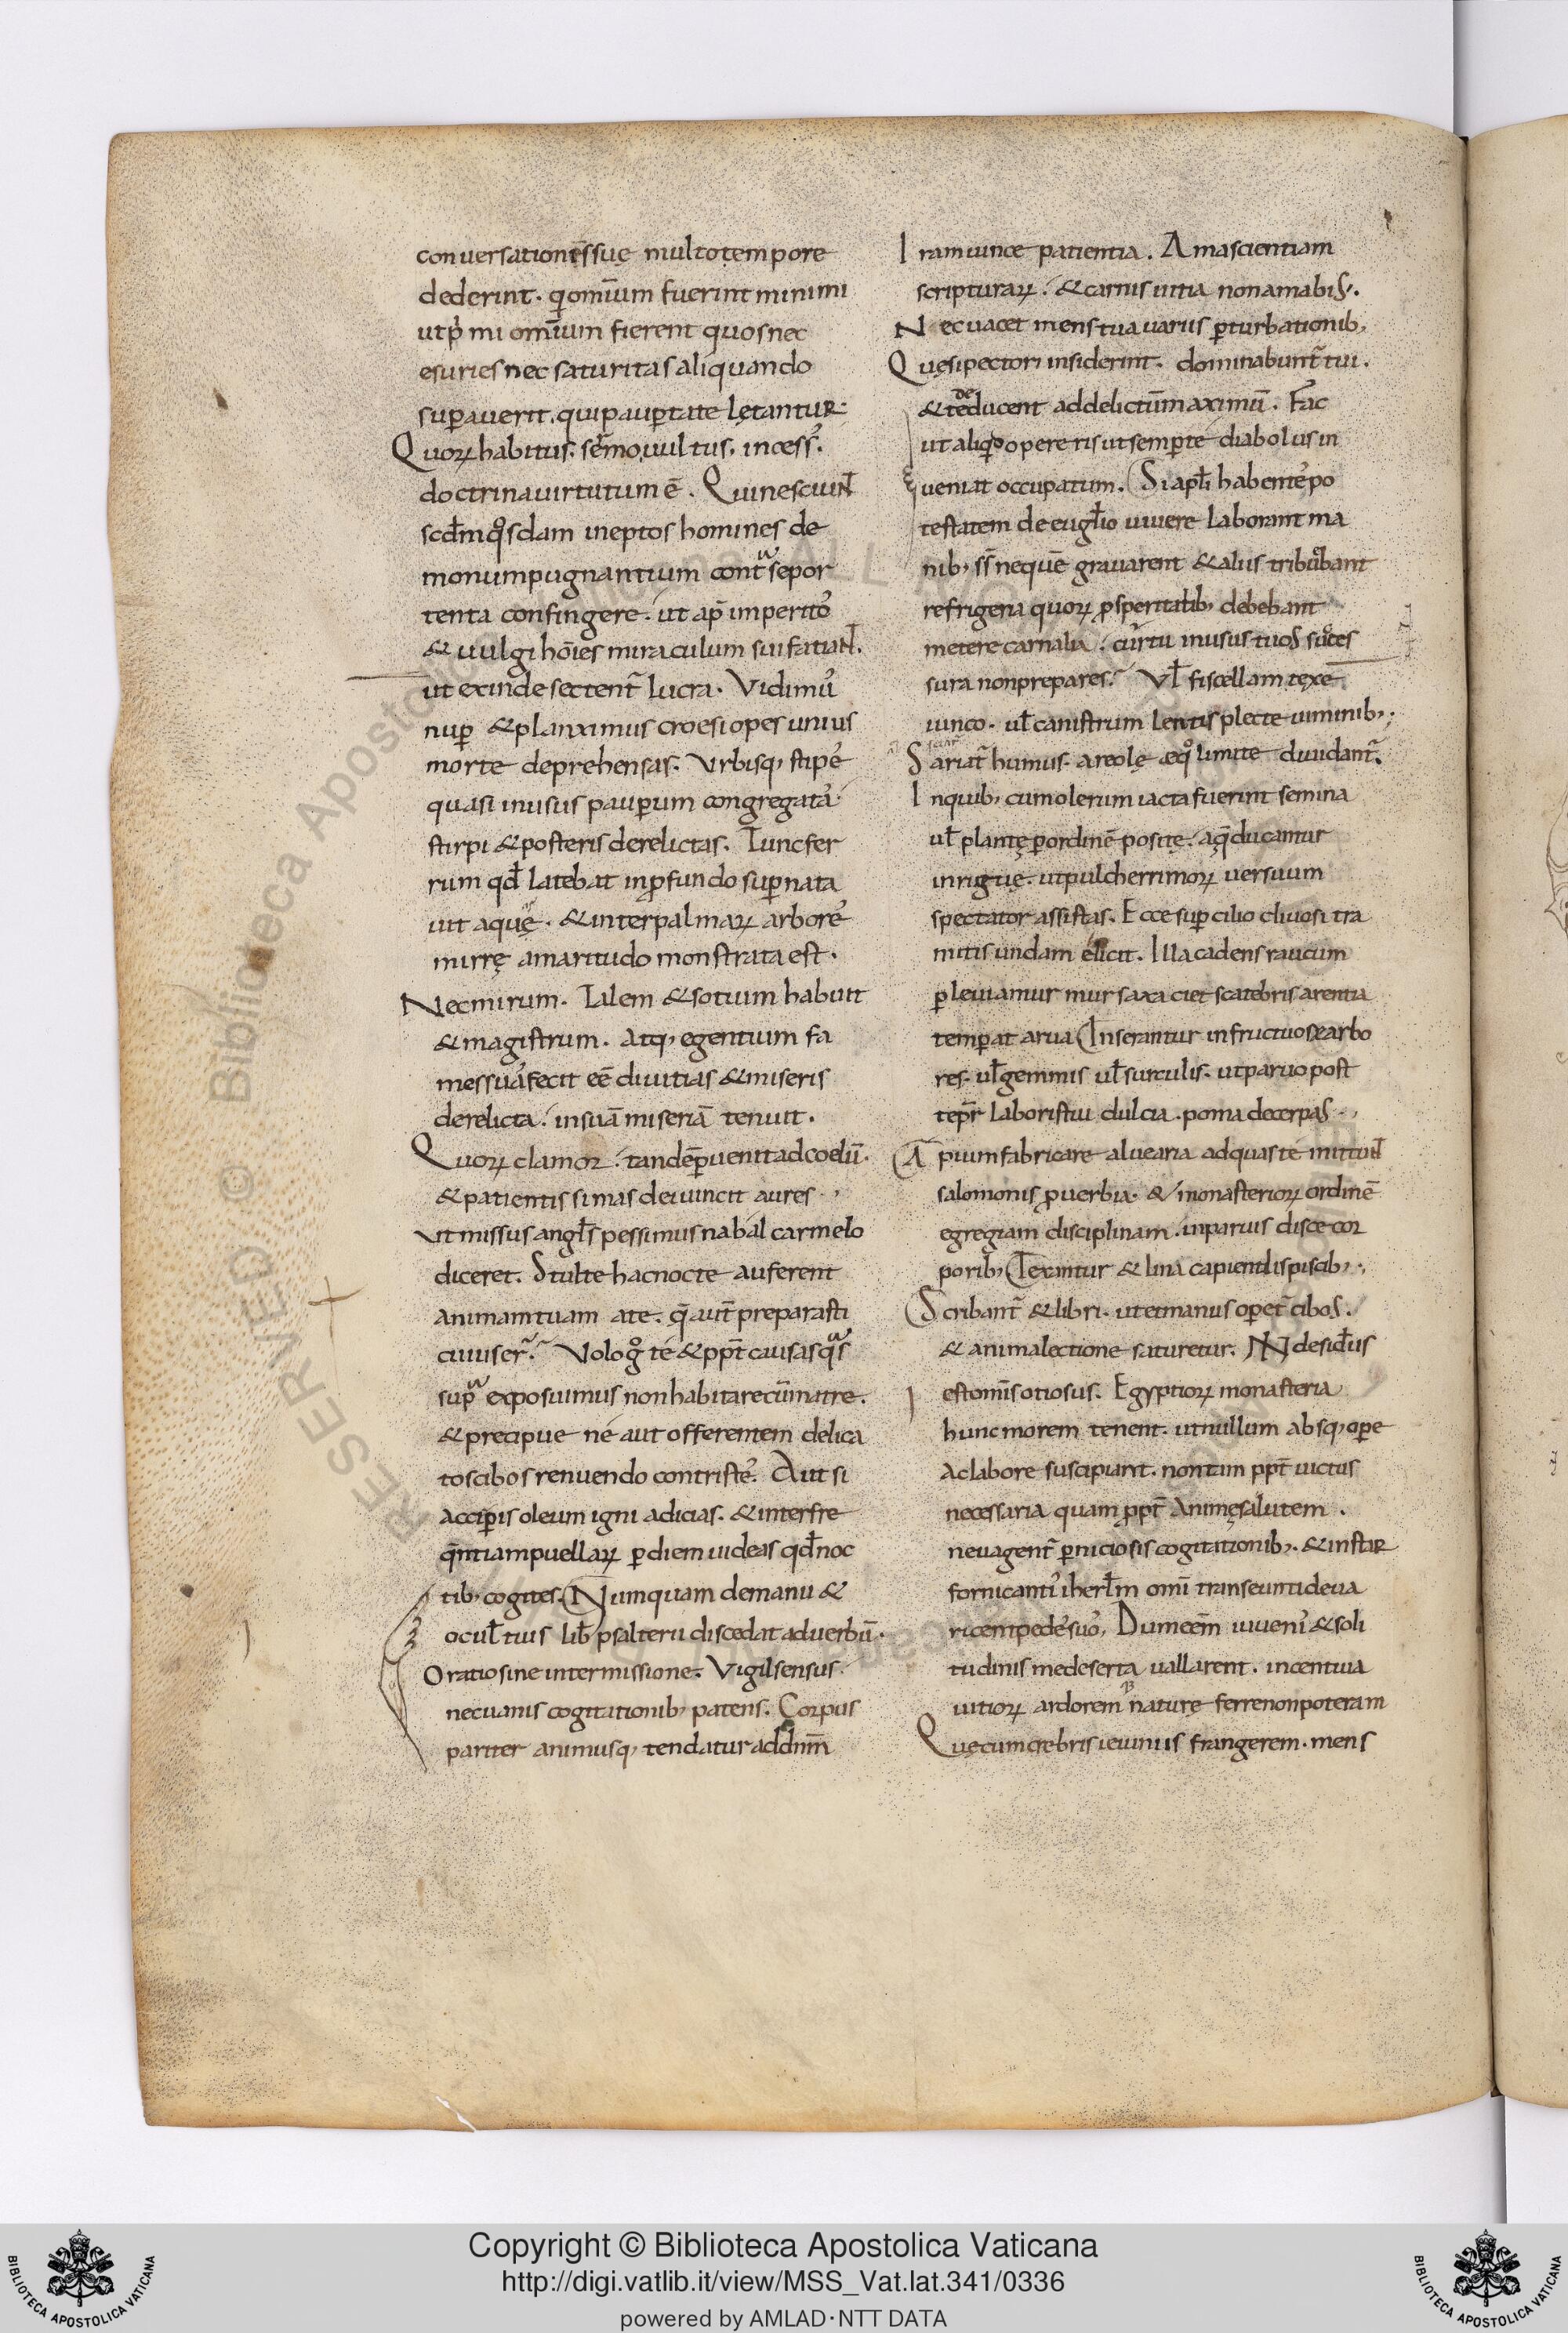 conuersationẽs suę multo tempore
dederint. qi omium fuerint minimi
ut pi mi omium fierent quos nec
esuries nec saturitas aliquando
supauerit. qui paupertate lętantur.
Quoꝝ habitus. semo. uultus. incess'.
doctrina uirtutum ē. Qui nesciunt
scdm qosdam ineptos homines de
monum pugnantium contra se por
tenta confingere. ut ap imperito'
& uulgi hoies miraculum sui fatiant.
ut exinde sectent lucra. Vidimu'
nup & planximus croesi opes unius
morte deprehensas. Vrbisq; stipe'
quasi inusus pauperum congregata'
stirpi & posteris derelictas. Tunc fer
rum qđ latebat in pfundo supnata
uit aquę. & inter palmaꝝ arbore'
mirrę amaritudo monstrata est.
Nec mirum. Talem & sotium habuit
& magistrum. atq; egentium fa
mes sua' fecit eē diuitias & miseris
derelicta. in suā miseriā tenuit.
Quoꝝ clamor. tandē puenit ad coelū.
& patientissimas dei uincit aures.
Vt missus angls pessimus nabal carmelo
diceret. Stulte hac nocte auferent
animam tuam a te. q̄ aut preparasti
cuius er̃. Volo g° te & ppt causas qas
supa exposuimus non habitare cū matre.
& precipue ne aut offerentem delica
tos cibos renuendo contriste'. Aut si
accipis oleum igni adicias. & inter fre
qntiam puellaꝝ p diem uideas qđ noc
tib; cogites. Numquam de manu &
ocul tuis lib psalterii discedat ad uerbū.
Oratio sine intermissione. Vigil sensus.
nec uanis cogitationib; patens. Corpus
pariter animusq; tendatur ad dnm
Iram uince patientia. Ama scientiam
scripturaꝝ. & carnis uitia non amabis.
Nec uacet mens tua uariis pturbationib;
Quę si pectori insiderint. dominabunt tui.
de
& te ducent ad delictū maximū. Fac
ut aliqd operis ut semper te diabolus in
ueniat occupatum. Si apli habente' po
testatem de euglio uiuere laborant ma
nib; ss ne quē grauarent & aliis tribuebant
refrigeria quoꝝ p spiritalib; debebant
metere carnalia. cur tu in usus tuos succes
sura non prepares. Vl fiscellam texe
iunco. ul canistrum lentis plecte uiminib;
Sariat humus. areolę æqo limite diuidant.
In quib; cum olerum iacta fuerint semina
ul plantę p ordinē positę. aq ducantur
inriguę. ut pulcherrimoꝝ uersuum
spectator assistas. Ecce supcilio cliuosi tra
mitis undam elicit. Illa cadens raucum
p leuia murmur saxa ciet scatebris arentia
temperat arua Inserantur infructuose arbo
res. ul gemmis ul surculis. ut paruo post
tepr laboris tui dulcia. poma decerpas.
Apium fabricare aluearia ad quas te mittunt
salomonis puerbia. & monasterioꝝ ordinē
egregiam disciplinam. in paruis disce cor
porib; Texantur & lina capiendis piscib;.
Scribant & libri. ut et manus operet cibos.
& anima lectione saturetur. In desideriis
est omis otiosus. Egyptioꝝ monasteria
hunc morem tenent. ut nullum absq; ope
ac labore suscipiant. non tam ppt uictus
necessaria quam ppt animę salutem.
ne uagent pniciosis cogitationib;. & instar
fornicanti' iherlm omi transeunti deua
ricent pede' suo'. Dum eem iuueni' & soli
tudinis me deserta uallarent. incentiua
uitioꝝ ardorem naturę ferre non poteram
Quę cum crebris ieiuniis frangerem. mens
Copyright © Biblioteca Apostolica Vaticana
http://digi.vatlib.it/view/MSS_Vat.lat.341/0336
powered by AMLAD·NTT DATA